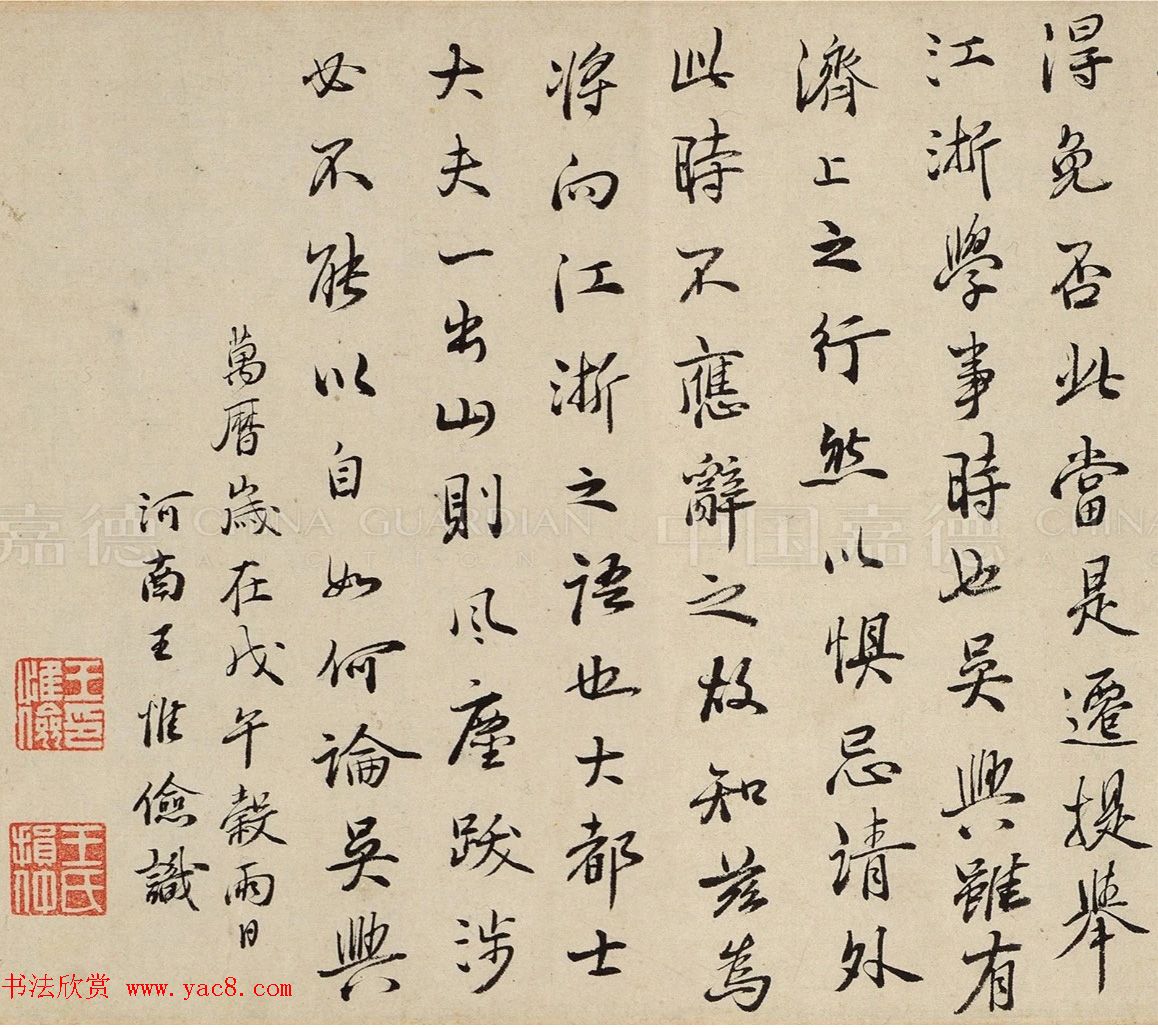 得免否此當是遷提舉
江浙學事時也吳興雖有
濟上之行然以懼忌請外
此時不應辭之故知茲為
將向江浙之語也大都士
大夫一出山則風塵跋涉
必不能以自如何論吳興
萬曆歲在戊午穀雨日
河南王惟儉識
王惟儉印
王氏損仲
嘉德 CHINA GUARDIAN AUCTIONS 中国嘉德 CHINA
书法欣赏 www.yac8.com